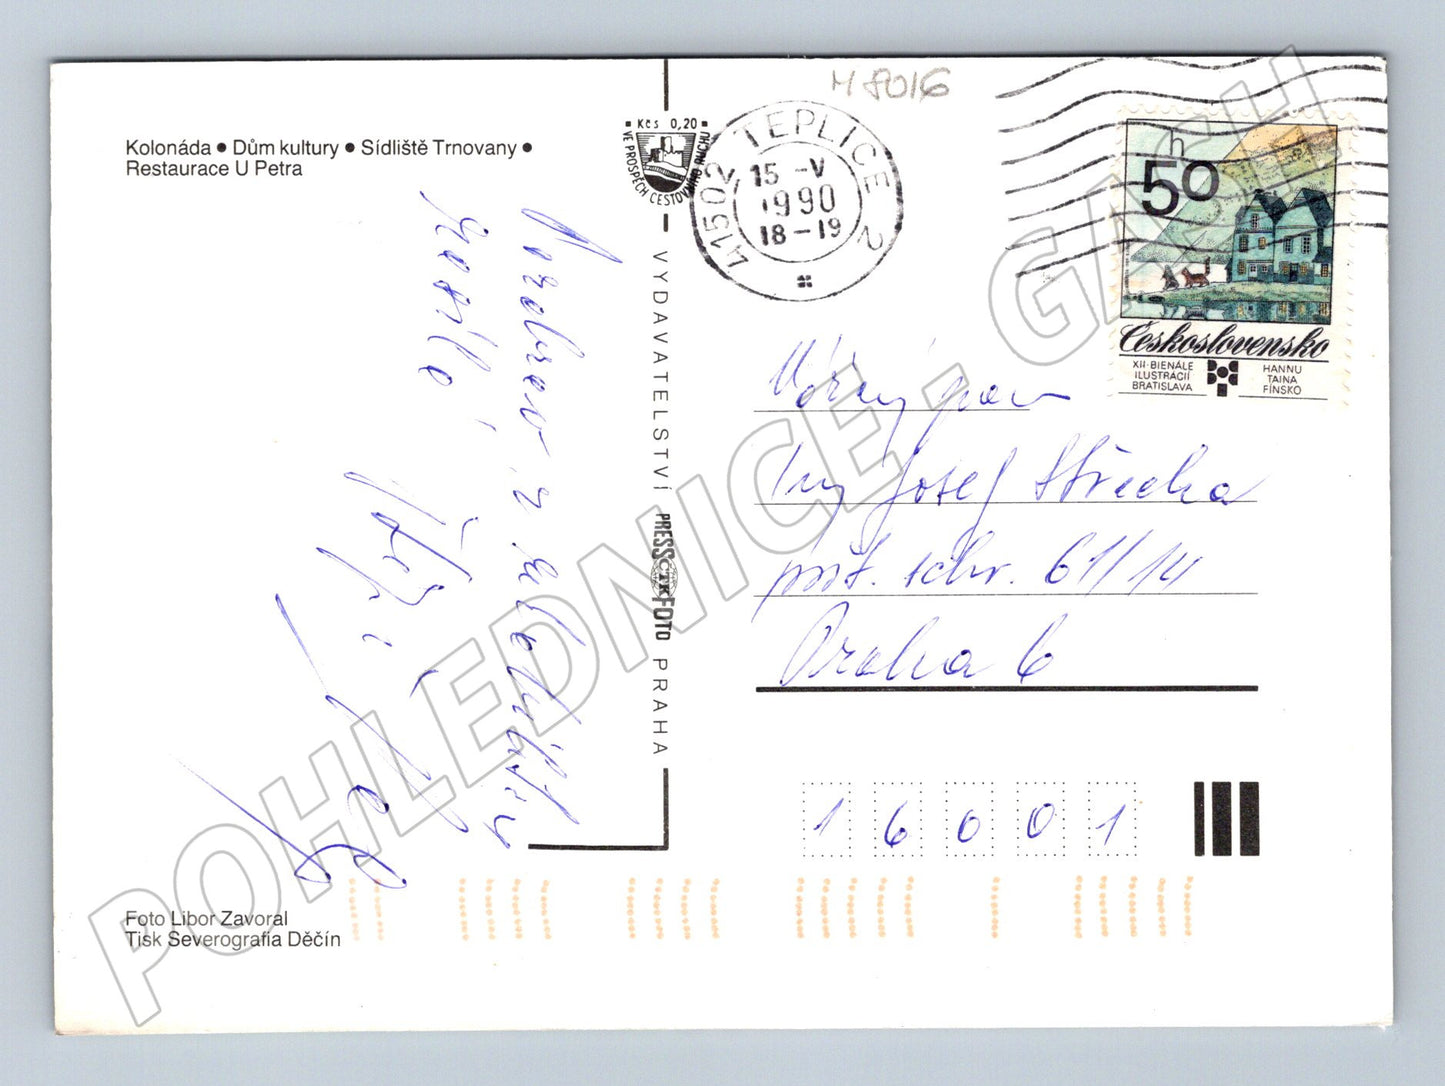 M 8016
Kolonáda • Dům kultury • Sídliště Trnovany •
Restaurace U Petra
Kčs 0,20
VE PROSPĚCH CESTOVNÍHO RUCHU
41502 TEPLICE 2
15 -V
1990
18-19
50 h
Československo
XII·BIENÁLE
ILUSTRÁCIÍ
BRATISLAVA
HANNU
TAINA
FÍNSKO
Pozdrav z
VYDAVATELSTVÍ PRESSFOTO PRAHA
ČTK
Vážený pan
Ing Josef Střecha
pošt. schr. 61/14
Praha 6
16001
Foto Libor Zavoral
Tisk Severografia Děčín
POHLEDNICE - GASH